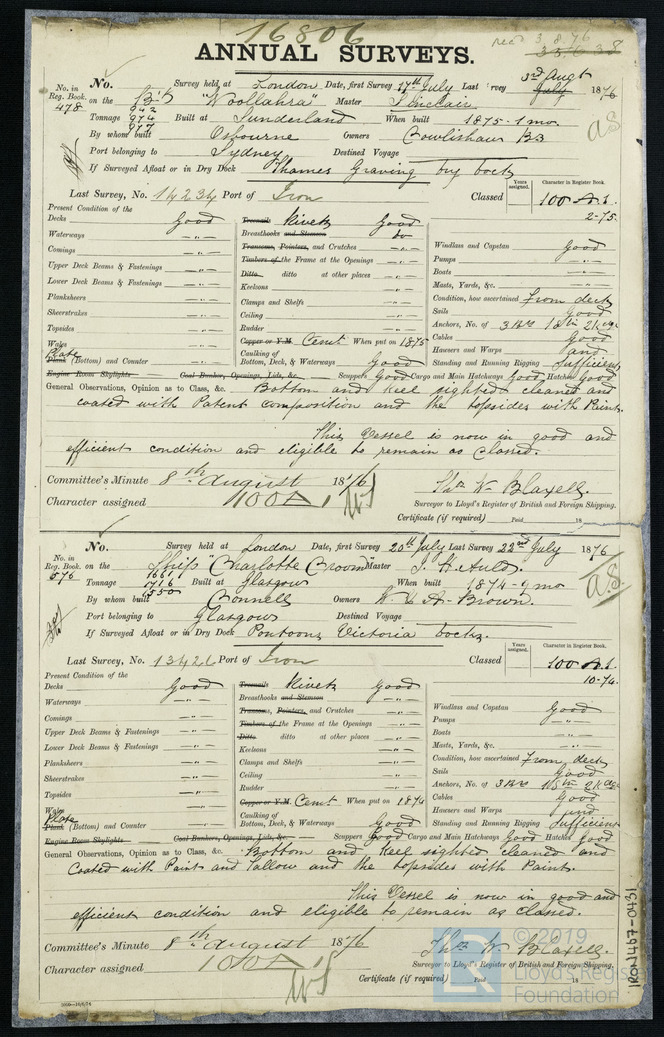 16806
Rec 3.8.76
ANNUAL SURVEYS.
No. in Reg. Book. 478
No. Survey held at London Date, first Survey 17th July Last Survey 3rd Augt 1876
on the "Woollahra" Master Sinclair
Tonnage 942 974 Built at Sunderland When built 1875-1 mo.
By whom built Osbourne Owners Cowlishaw Bs
Port belonging to Sydney Destined Voyage
If Surveyed Afloat or in Dry Dock Thames Graving dry dock
Last Survey, No. 14234 Port of Iron Classed Years assigned. Character in Register Book. 100 A.1.
2-75.
Present Condition of the
Decks Good
Waterways
Comings
Upper Deck Beams & Fastenings
Lower Deck Beams & Fastenings
Planksheers
Sheerstrakes
Topsides
Wales
Plate
Plank (Bottom) and Counter
Treenails Rivets Good
Breasthooks and Stemson do
Transoms, Pointers, and Crutches
Timbers of the Frame at the Openings
Ditto ditto at other places
Keelsons
Clamps and Shelfs
Ceiling
Rudder
Copper or Y.M. Cemt. When put on 1875
Caulking of
Bottom, Deck, & Waterways Good
Windlass and Capstan Good
Pumps
Boats
Masts, Yards, &c.
Condition, how ascertained from deck
Sails Good
Anchors, No. of 3 Brs
Cables Good
Hawsers and Warps and
Standing and Running Rigging Sufficient
Engine Room Skylights Coal Bunker, Openings, Lids, &c. Scuppers Good Cargo and Main Hatchways Good Hatches Good
General Observations, Opinion as to Class, &c. Bottom and Keel sighted cleaned and
coated with Patent composition and the topsides with Paint.
This Vessel is now in good and
efficient condition and eligible to remain as Classed.
Committee's Minute 8th August 1876
Character assigned 100A1
Thos W. Blaxell.
Surveyor to Lloyd's Register of British and Foreign Shipping.
Certificate (if required) Paid 18
No. in Reg. Book. 576
No. Survey held at London Date, first Survey 20th July Last Survey 22nd July 1876
on the Ship "Charlotte Croom" Master J. H. Auld.
Tonnage 1661 1716 1550 Built at Glasgow When built 1874-9 mo
By whom built Connell Owners W. & A. Brown.
Port belonging to Glasgow Destined Voyage
If Surveyed Afloat or in Dry Dock Pontoon Victoria docks.
A.S.
Last Survey, No. Port of Iron Classed Years assigned. Character in Register Book. 100 A.1.
10-74.
Present Condition of the
Decks Good
Waterways
Comings
Upper Deck Beams & Fastenings
Lower Deck Beams & Fastenings
Planksheers
Sheerstrakes
Topsides
Wales
Plate
Plank (Bottom) and Counter
Treenails Rivets Good
Breasthooks and Stemson
Transoms, Pointers, and Crutches
Timbers of the Frame at the Openings
Ditto ditto at other places
Keelsons
Clamps and Shelfs
Ceiling
Rudder
Copper or Y.M. Cemt. When put on 1874
Caulking of
Bottom, Deck, & Waterways Good
Windlass and Capstan Good
Pumps
Boats
Masts, Yards, &c.
Condition, how ascertained From deck
Sails Good
Anchors, No. of 3 Brs
Cables Good
Hawsers and Warps and
Standing and Running Rigging Sufficient
Engine Room Skylights Coal Bunkers, Openings, Lids, &c. Scuppers Good Cargo and Main Hatchways Good Hatches Good
General Observations, Opinion as to Class, &c. Bottom and Keel sighted cleaned and
Coated with Paint and Tallow and the topsides with Paint.
This Vessel is now in good and
efficient condition and eligible to remain as Classed.
Committee's Minute 8th August 1876
Character assigned 100A1
Thos W. Blaxell.
Surveyor to Lloyd's Register of British and Foreign Shipping.
Certificate (if required) Paid 18
IRON467-0431
© 2019
Lloyd's Register
Foundation